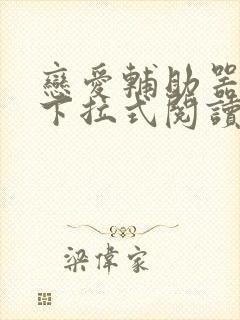 戀愛輔助器
下拉式閱讀
梁偉家